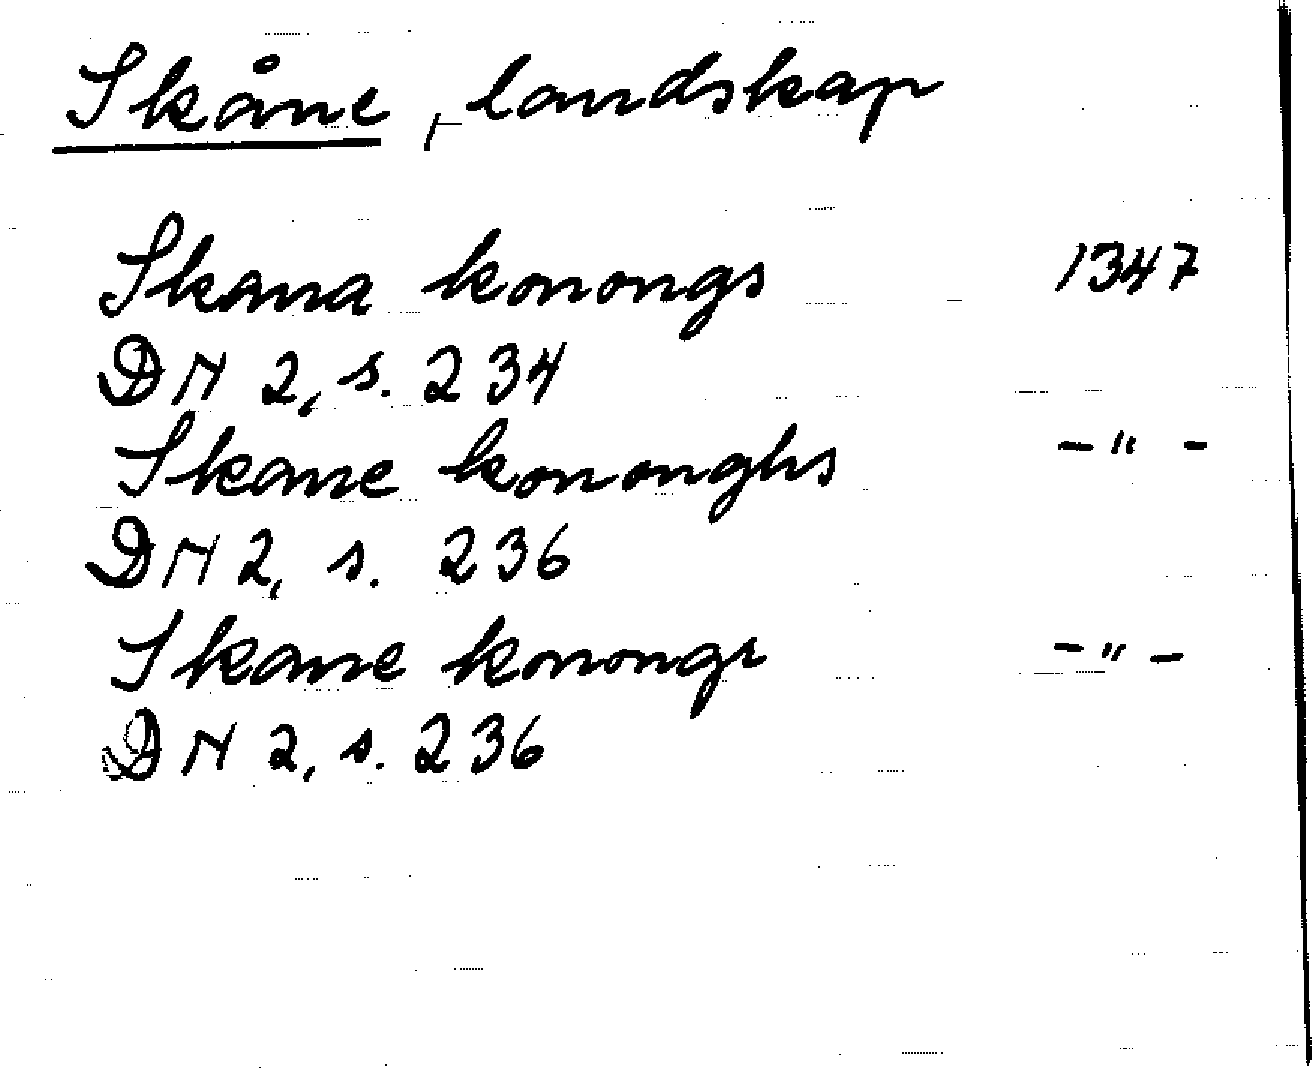 Skåne, landskap
Skana konongs 1347
DN 2, s. 234
Skane kononghs -"-
DN 2, s. 236
Skane konongr -"-
DN 2, s. 236